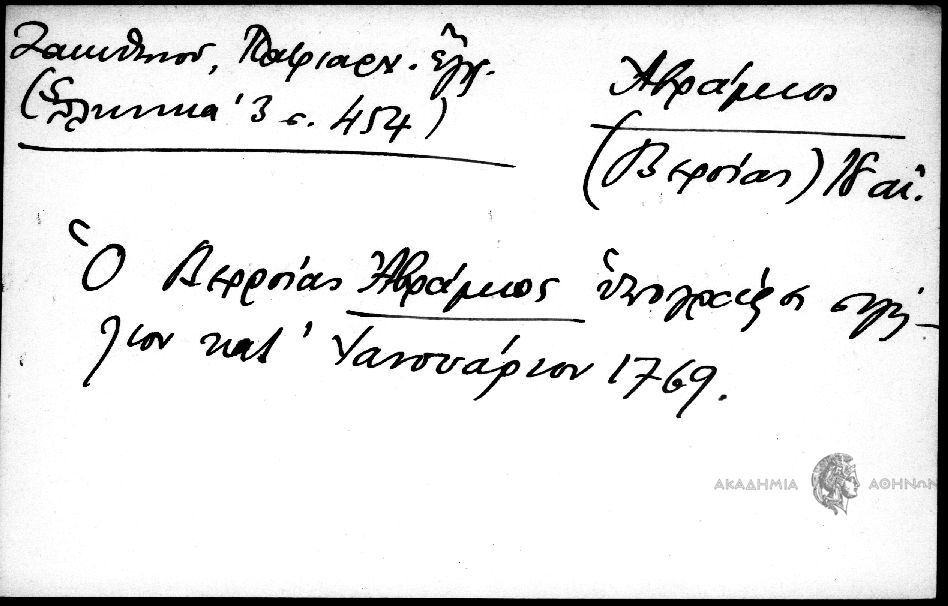 Ζακυθηνού, Πατριαρχ. ἔγγ.
(Ἑλληνικά 3 σ. 454)
Ἀβράμιος
(Βερροίας) 18 αἰ.
Ὁ Βερροίας Ἀβράμιος ὑπογράφει σιγίλ-
λιον κατ' Ἰανουάριον 1769.
ΑΚΑΔΗΜΙΑ ΑΘΗΝΩΝ